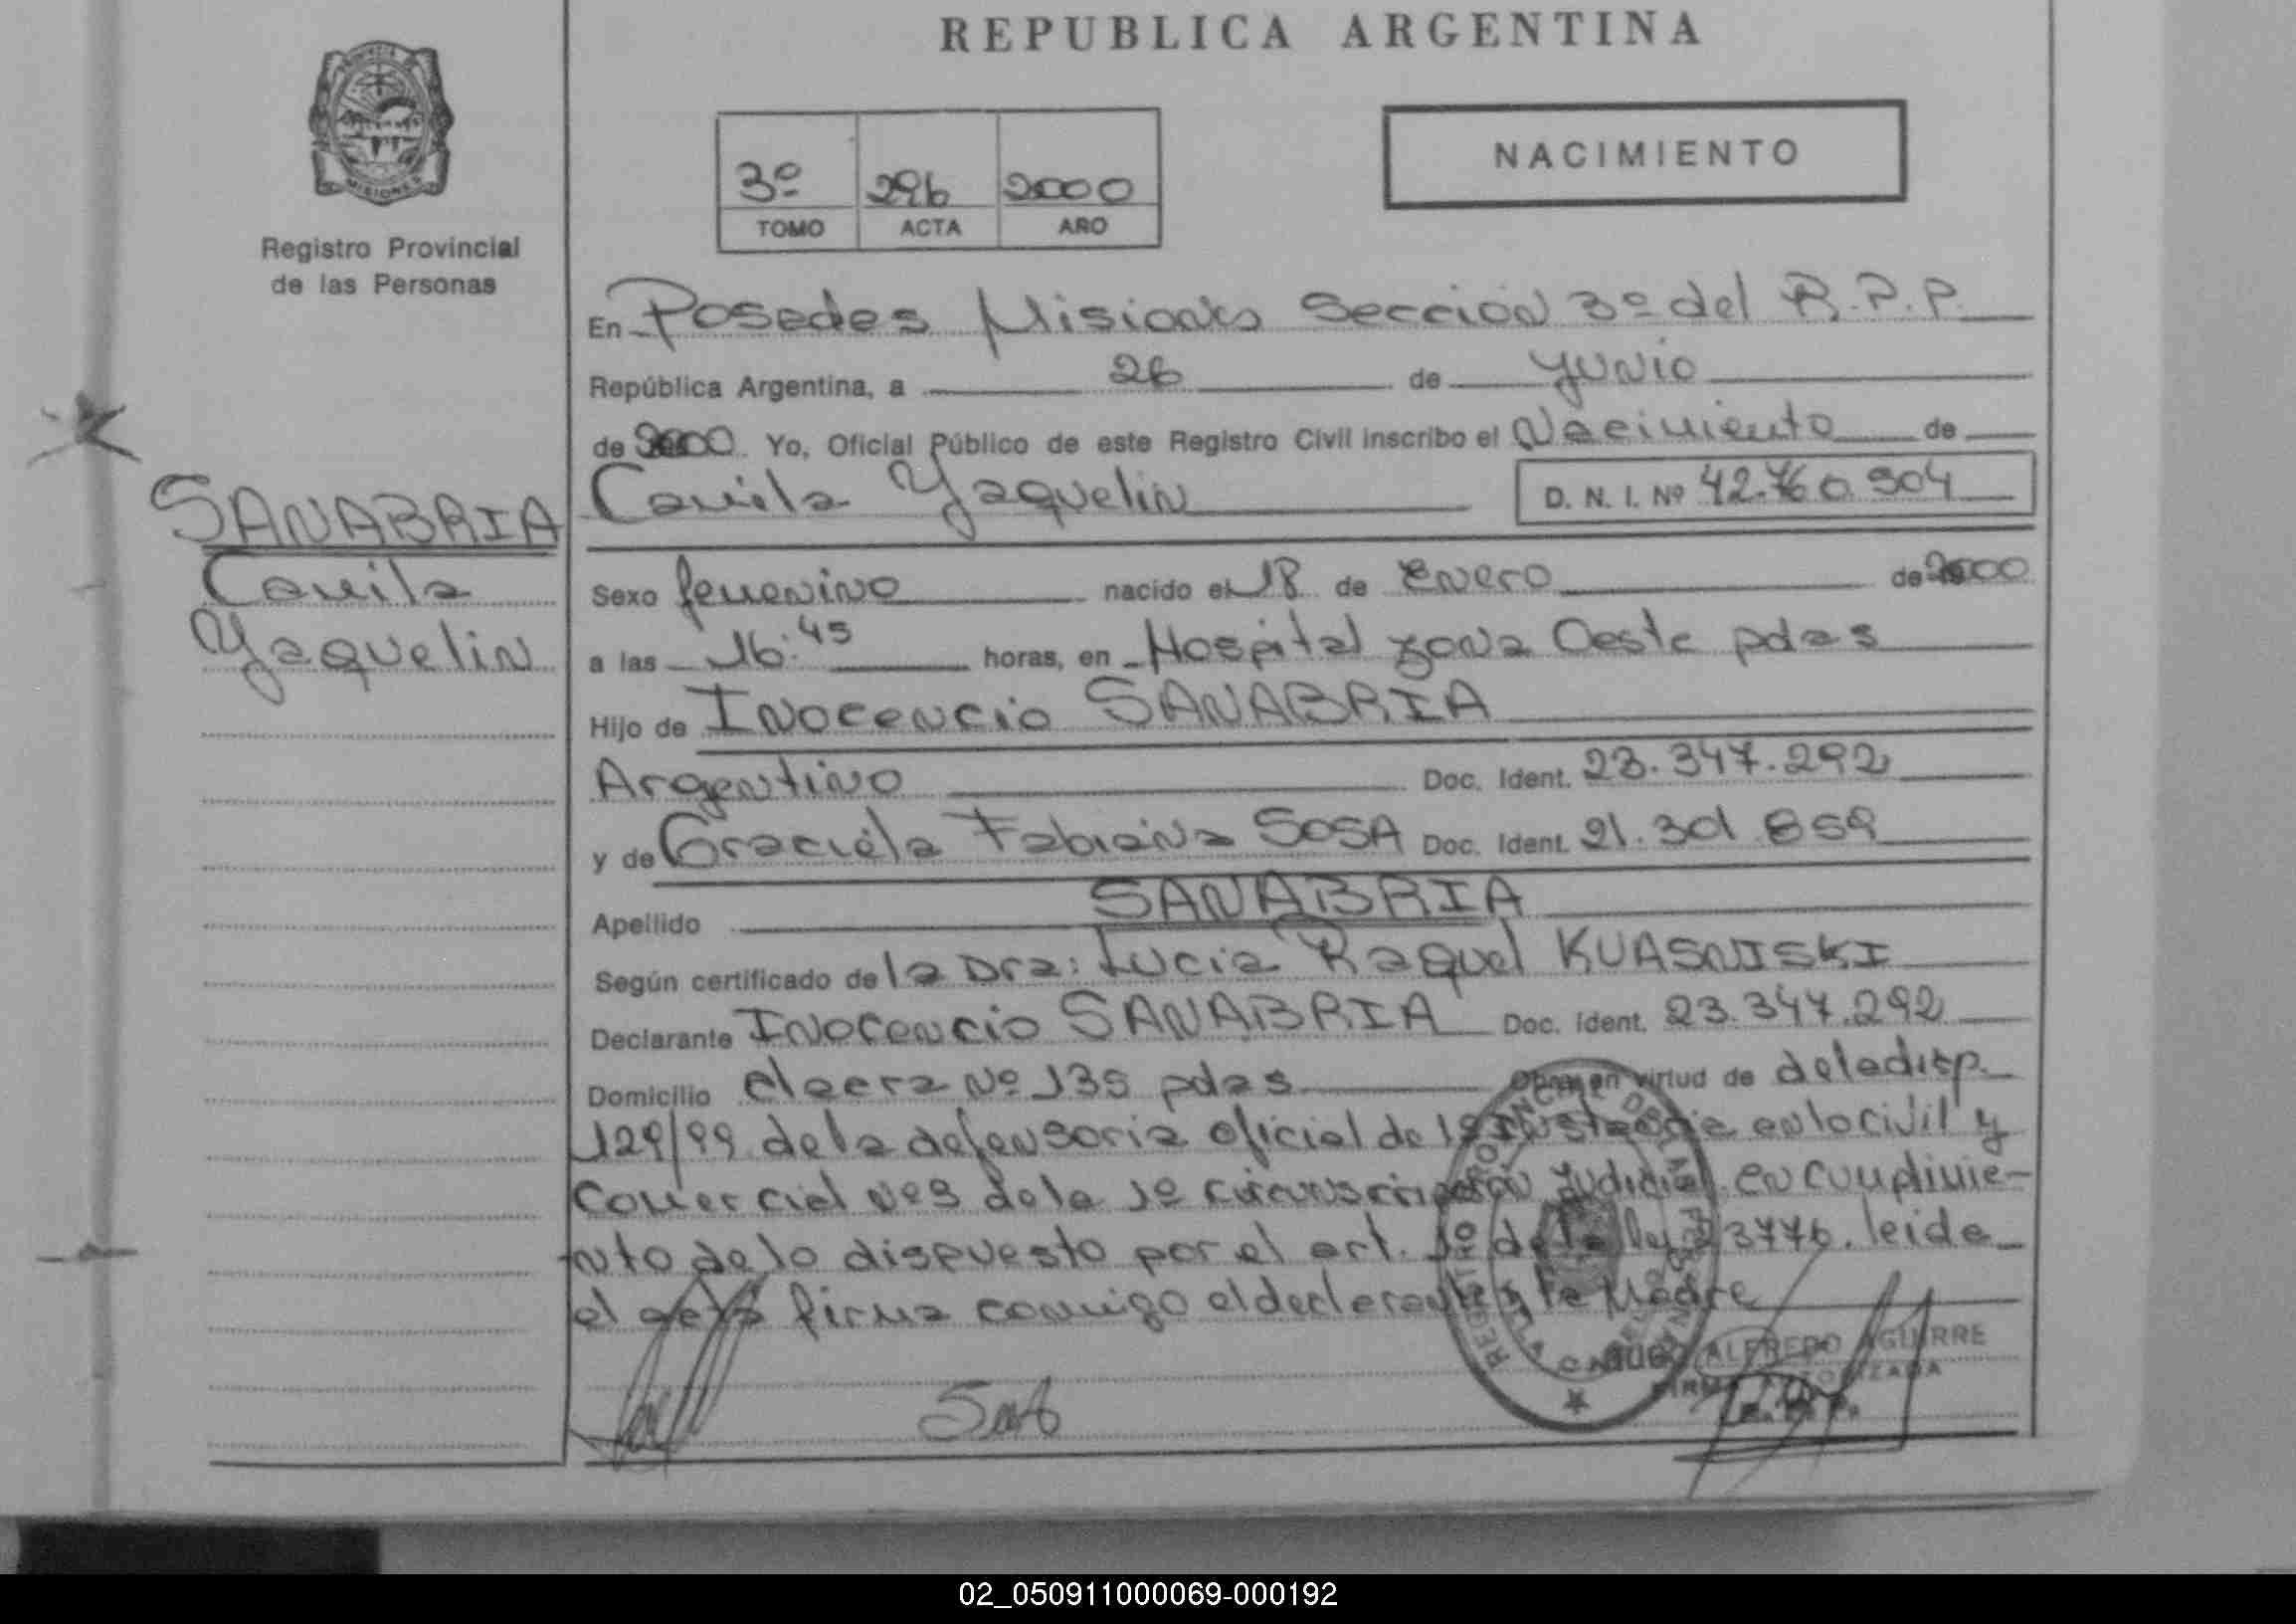 REPUBLICA ARGENTINA
MISIONES
3º 296 2000
TOMO ACTA AÑO
NACIMIENTO
Registro Provincial
de las Personas
En Posadas Misiones Sección 3º del R.P.P.
República Argentina, a 26 de Junio
de 2000. Yo, Oficial Público de este Registro Civil inscribo el Nacimiento de
Camila Yaquelin D. N. I. Nº 42.760.904
SANABRIA
Camila
Yaquelin
Sexo femenino nacido el 18 de Enero de 2000
a las 16:45 horas, en Hospital zona Oeste pdas
Hijo de Inocencio SANABRIA
Argentino Doc. Ident. 23.347.292
y de Graciela Fabiana SOSA Doc. Ident. 21.301.859
Apellido SANABRIA
Según certificado de la Dra: Lucia Raquel KUASNISKI
Declarante Inocencio SANABRIA Doc. Ident. 23.347.292
Domicilio chacra Nº 135 pdas Obra en virtud de de la disp.
129/99 de la defensoria oficial de 1º Instancia en lo civil y
Comercial Nº3 de la 1º circunscripción Judicial en cumplimie-
nto de lo dispuesto por el art. 1º de la ley 23776. leida
el acta firma conmigo el declarante y la Madre
ALFREDO AGUIRRE
FIRMA AUTORIZADA
02_050911000069-000192